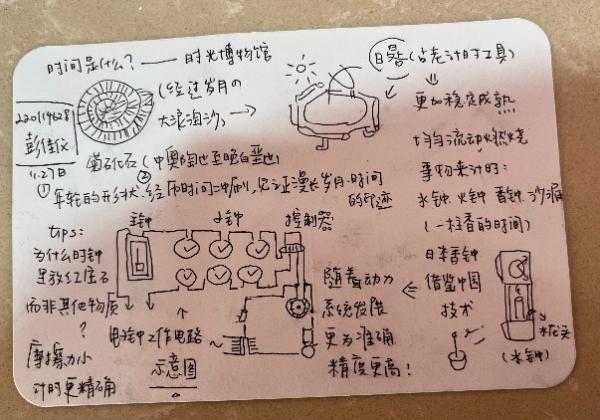 时间是什么？——时光博物馆
22011928
彭佳仪
11.27日
(经过岁月の
大浪淘沙)
日晷(古老计时工具)
更加稳定成熟
均匀流动燃烧
事物来计时:
水钟 火钟 香钟 沙漏
(一柱香的时间)
菊石化石(中奥陶世至晚白垩世)
①年轮的形状 ②经历时间冲刷,见证漫长岁月·时间
的印迹
tips:
为什么时钟
里放红宝石
而非其他物质
?
摩擦力小
计时更精确
主钟
子钟
控制器
电钟工作电路
示意图
随着动力
系统发展
更为准确
精度更高!
日本香钟
借鉴中国
技术
(水钟)